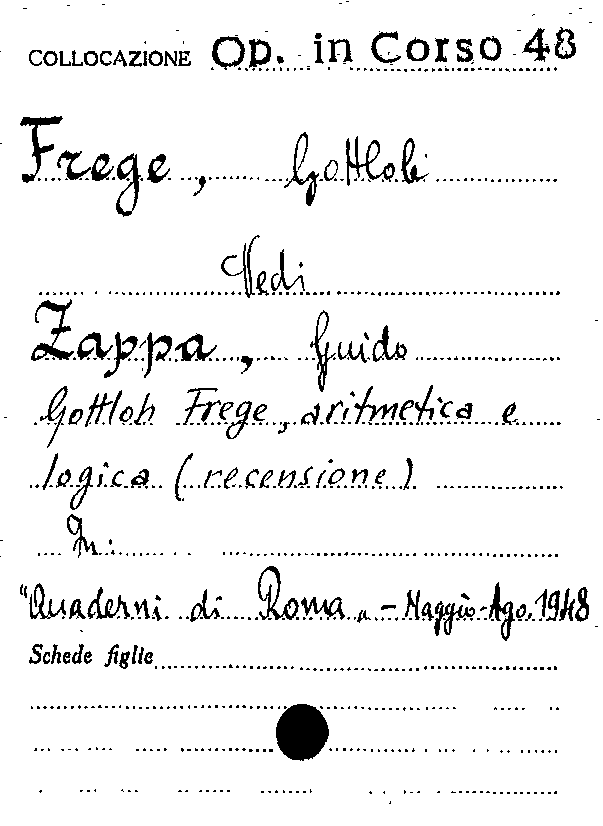 COLLOCAZIONE Op. in Corso 48
Frege, Gottlob
Vedi
Zappa, Guido
Gottlob Frege, aritmetica e
logica (recensione)
In:
"Quaderni di Roma" - Maggio-Ago. 1948
Schede figlie